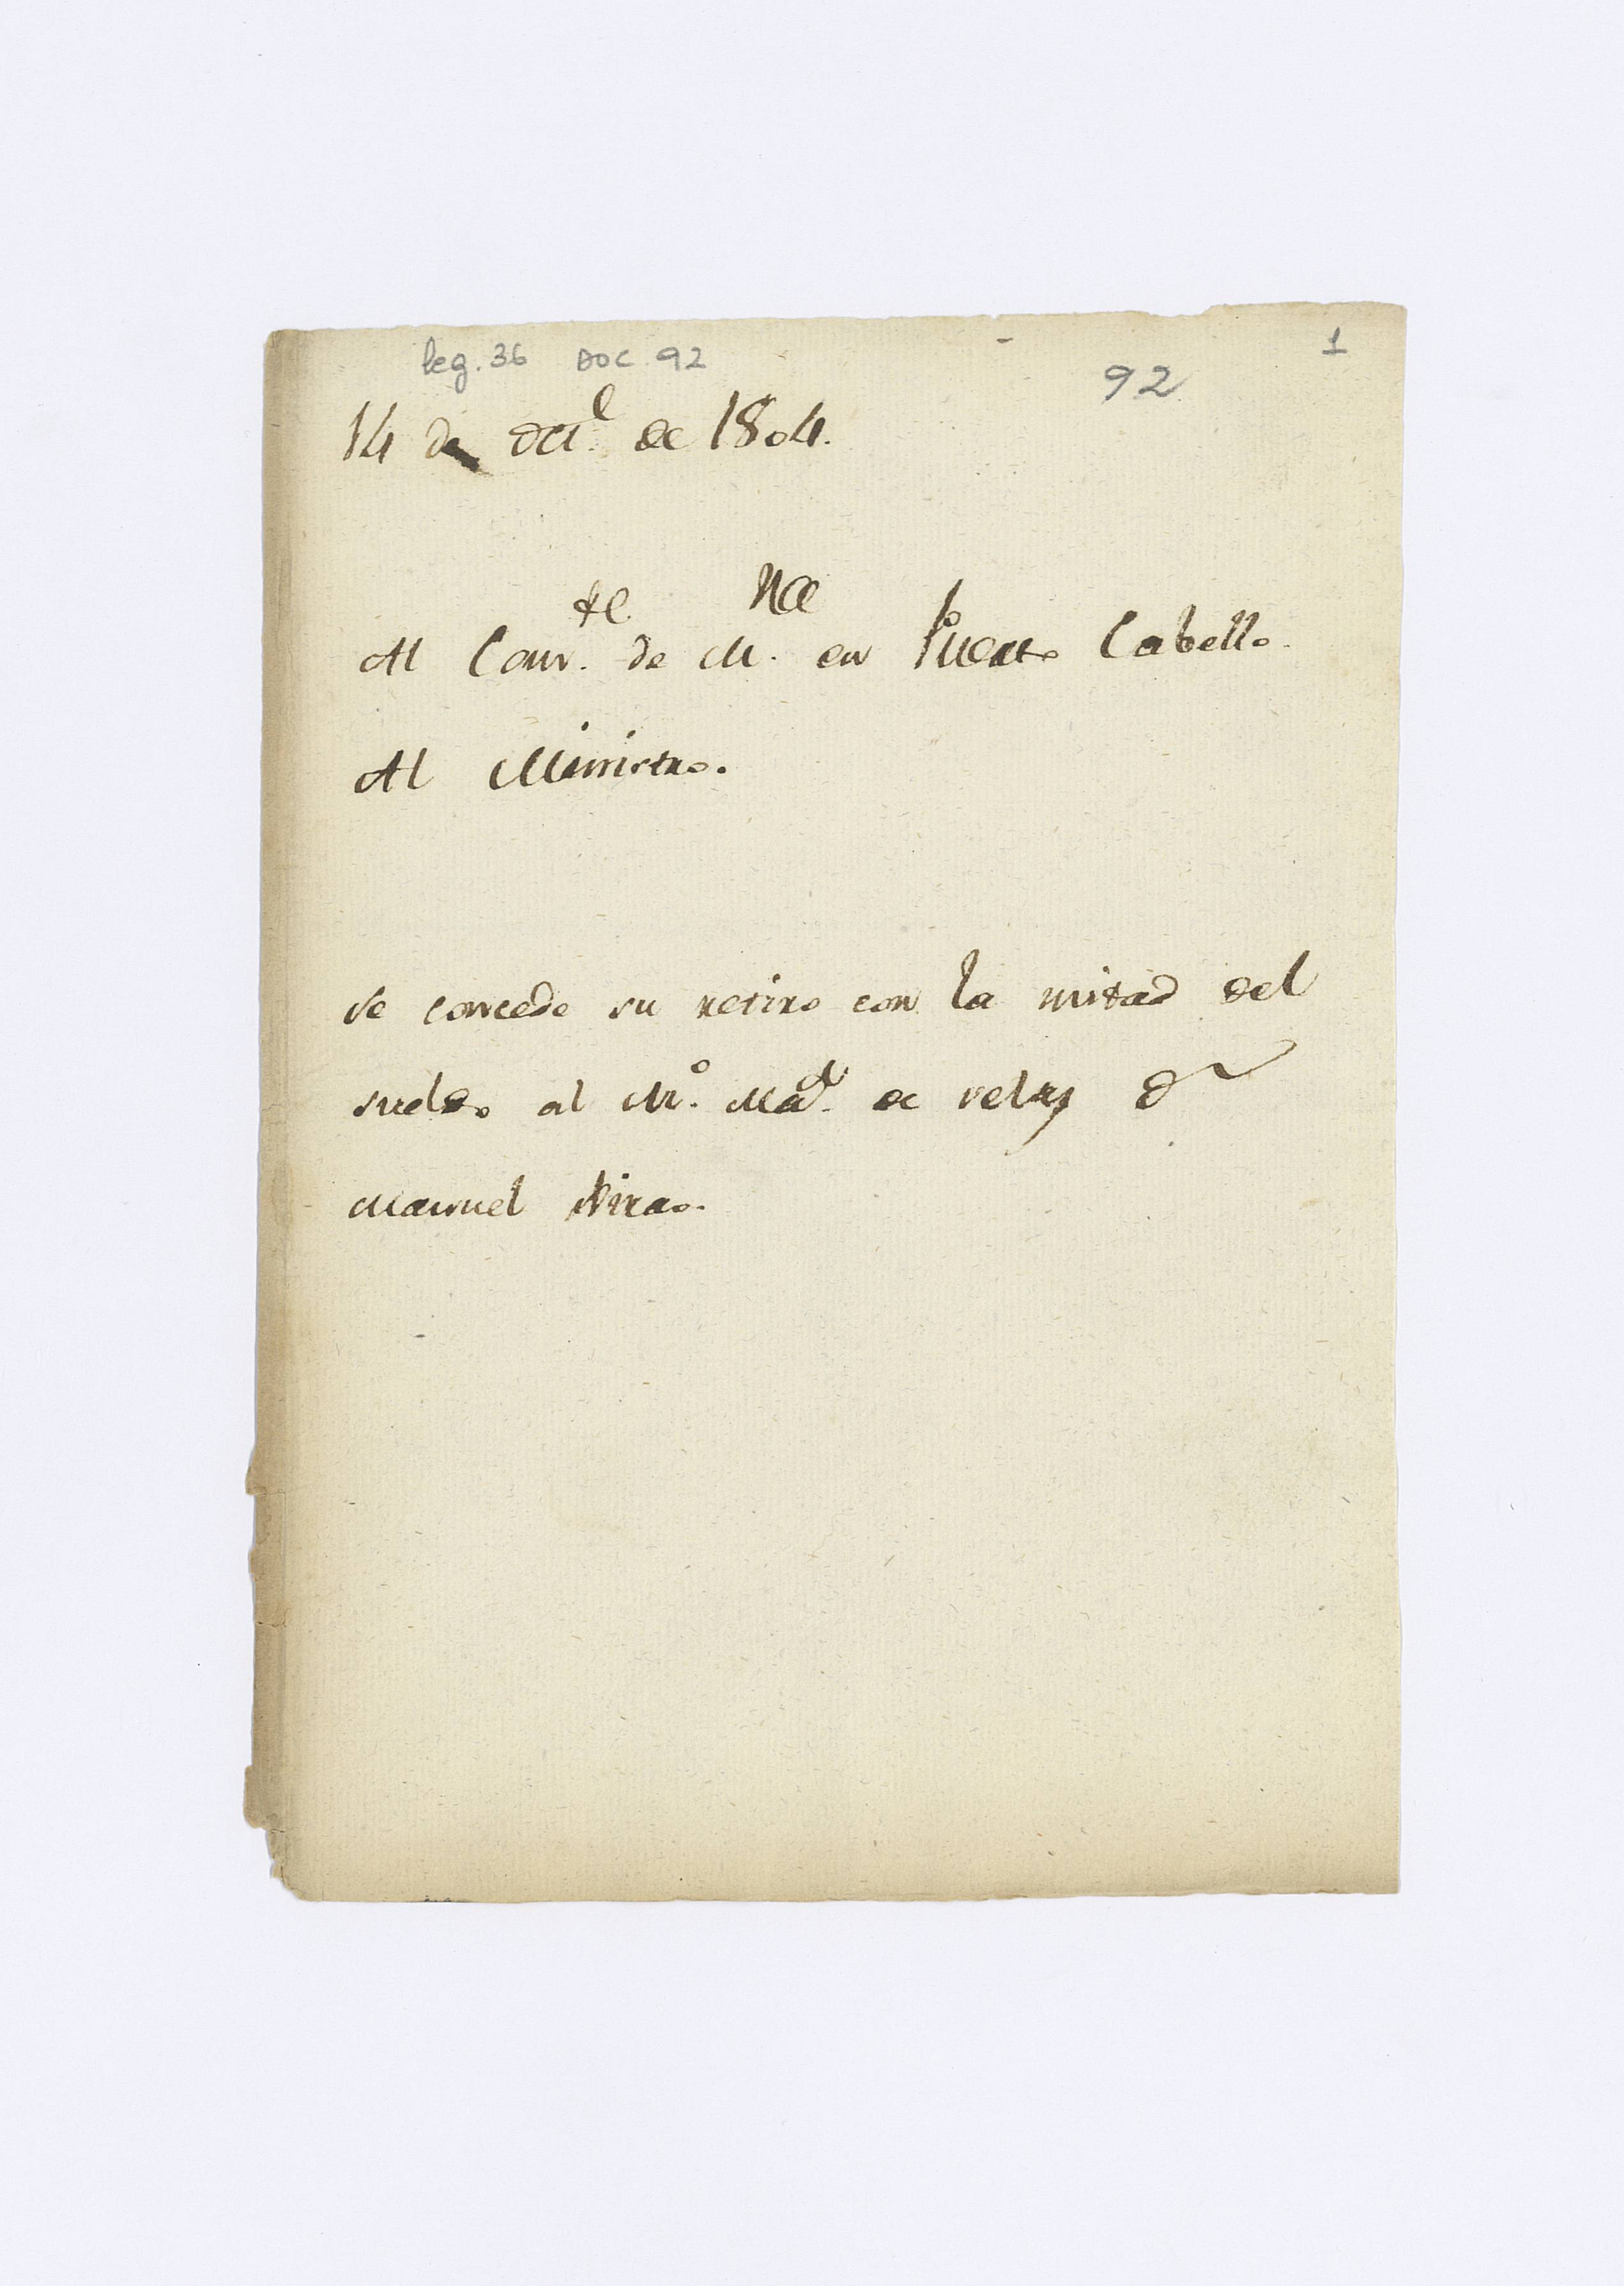 leg. 36 DOC. 92
92
1
14 de oct.e de 1804.
Al Com.te de M.na en Puerto Cabello.
Al Ministro.
Se concede su retiro con la mitad del
sueldo al M.o de velas D
Manuel